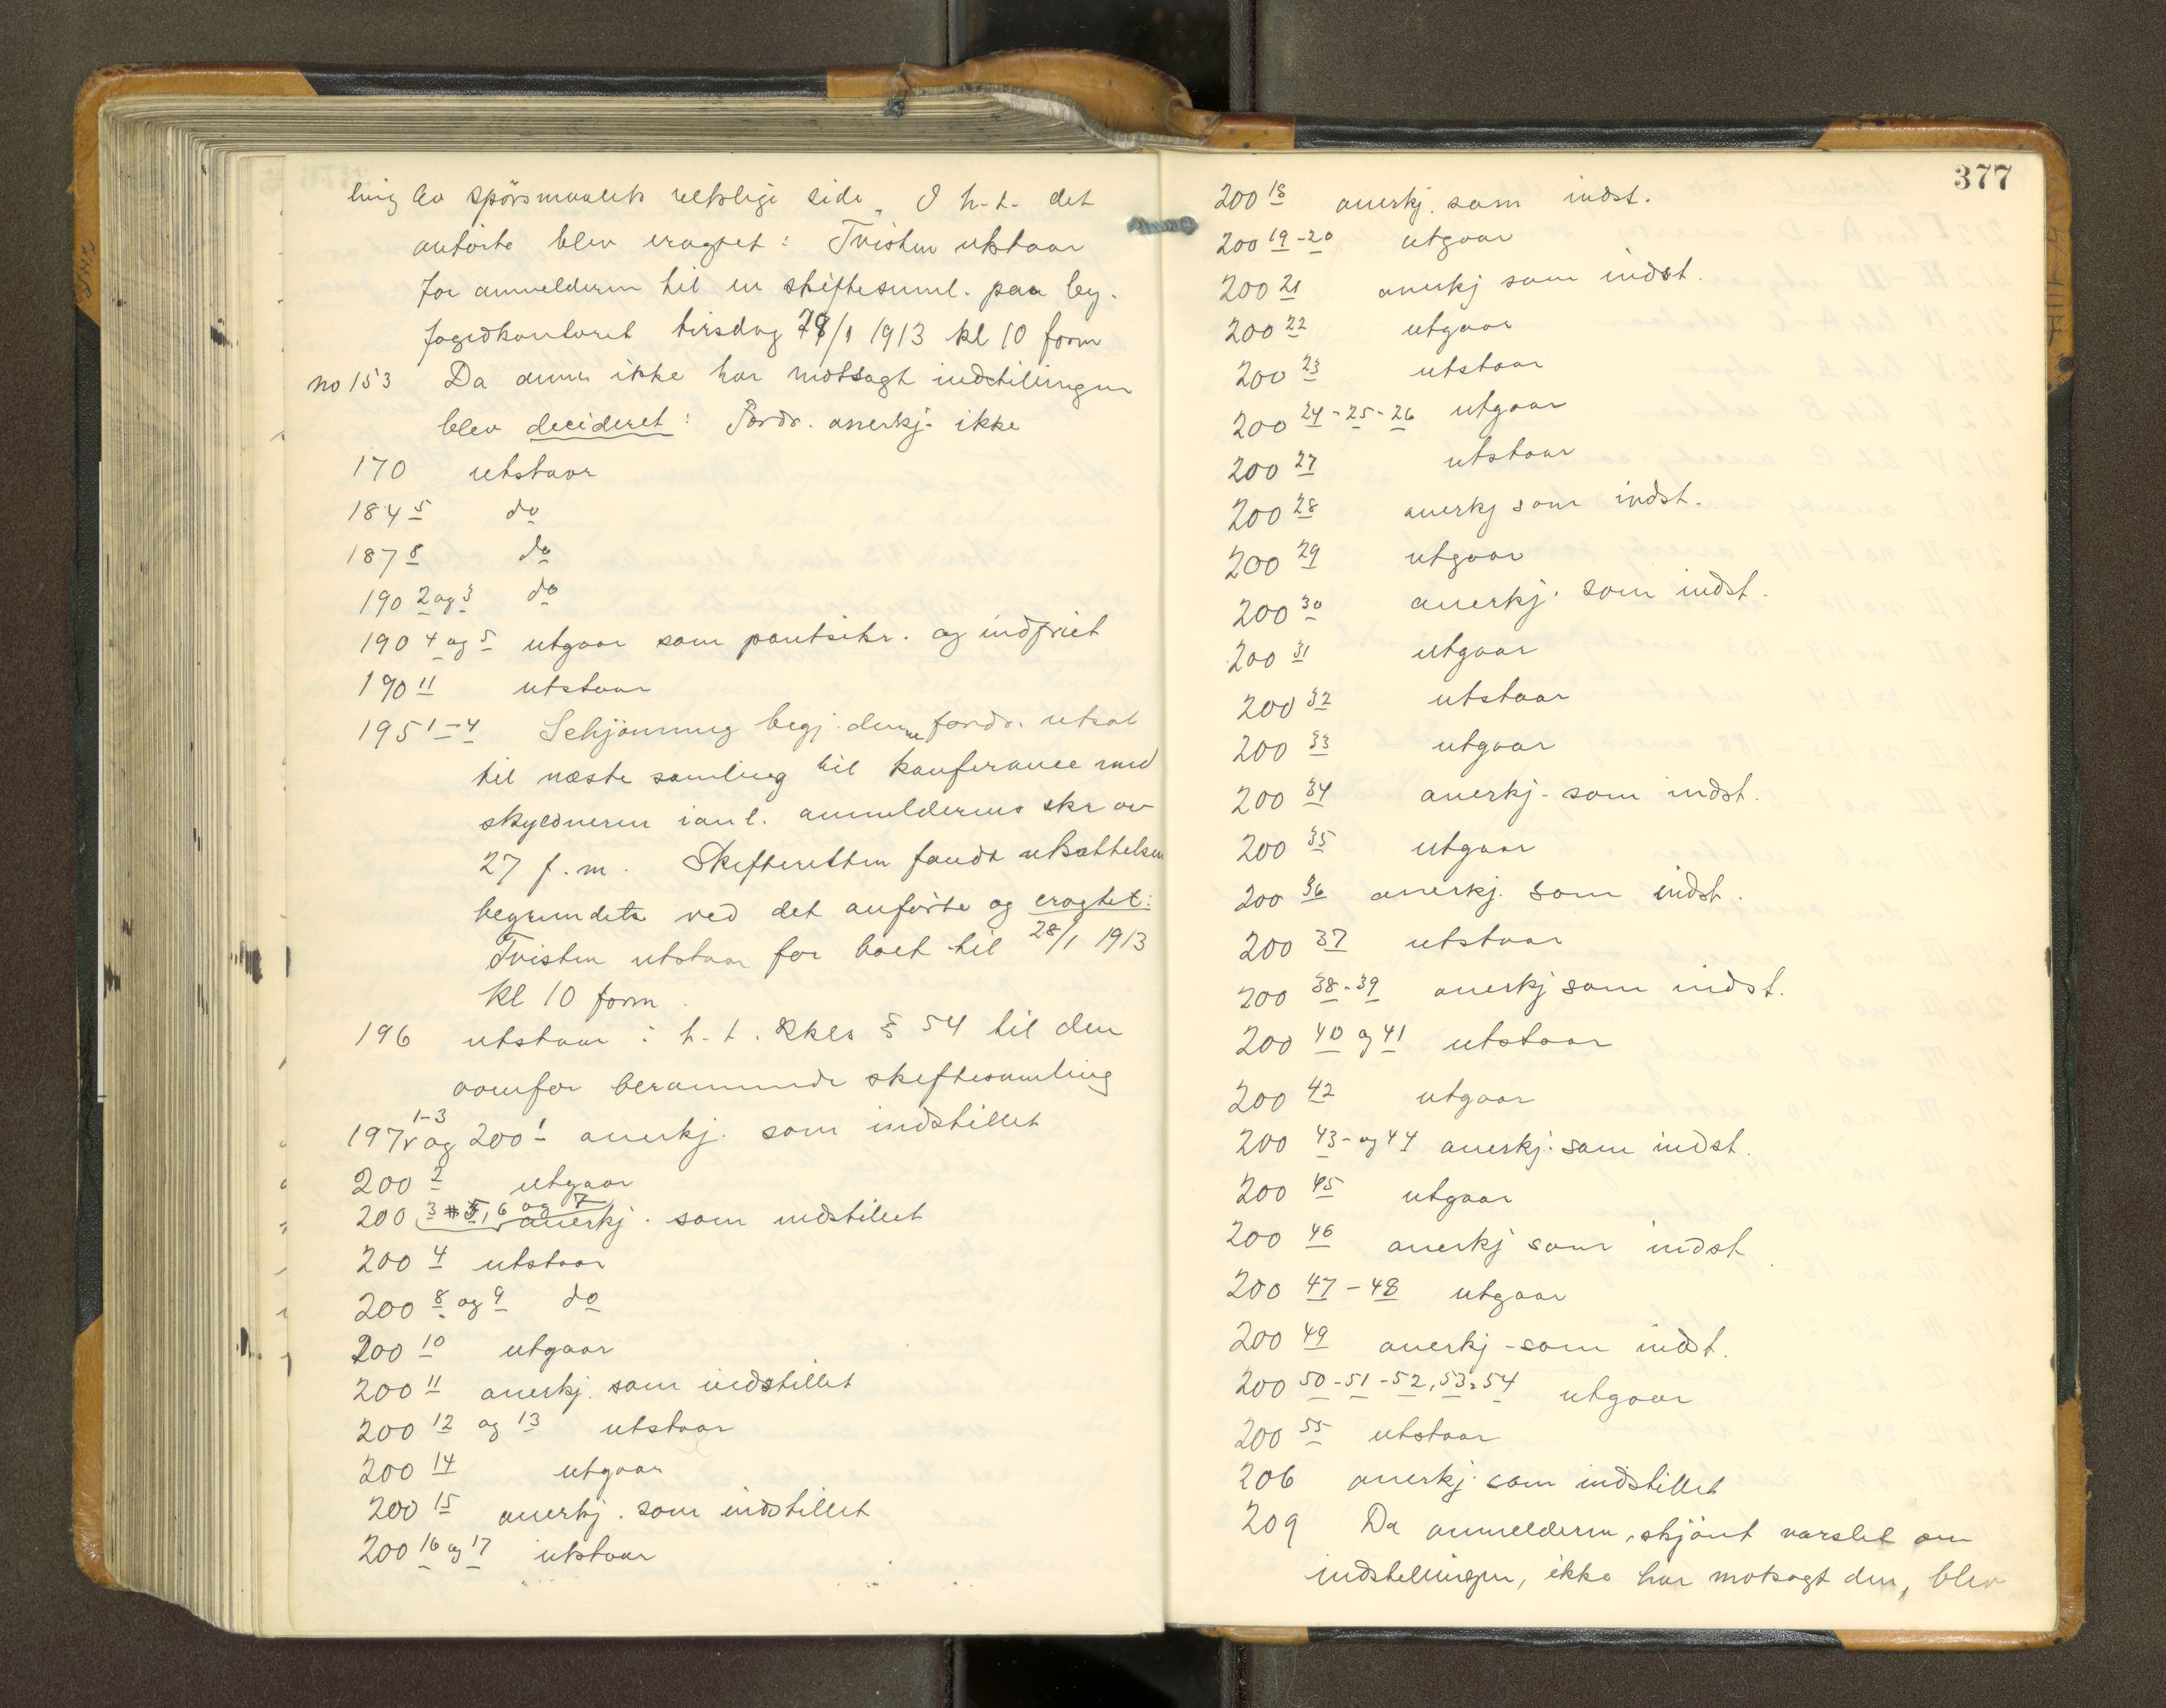 ling av spörsmaalets retslige side. I h.t. det
anförte blev eragtet: Tvisten utstaar
for anmelderen til en skiftesaml. paa by-
fogedkontoret tirsdag 28/1 1913 kl 10 form
no 153 Da anm. ikke har motsagt indstillingen
blev decideret: Fordr. anerkj. ikke
170 utstaar
184 5 do
187 8 do
190 2 og 3 do
190 4 og 5 utgaar som pantsikr. og indfriet
190 11 utstaar
195 1-4 Schjönning begj. denne fordr. utsat
til næste samling til konferance med
skyldneren i anl. anmelderens skr av
27 f.m. Skifteretten fandt utsættelsen
begrundet ved det anförte og eragtet:
Tvisten utstaar for boet til 28/1 1913
kl 10 form.
196 utstaar i h.t. Kkls § 54 til den
ovenfor berammede skiftesamling
197 1-3 og 200 1 anerkj. som indstillet
200 2 utgaar
200 3 5, 6 og 7 anerkj. som indstillet
200 4 utstaar
200 8 og 9 do
200 10 utgaar
200 11 anerkj. som indstillet
200 12 og 13 utstaar
200 14 utgaar
200 15 anerkj. som indstillet
200 16 og 17 utstaar
377
200 18 anerkj. som indst.
200 19-20 utgaar
200 21 anerkj som indst.
200 22 utgaar
200 23 utstaar
200 24-25-26 utgaar
200 27 utstaar
200 28 anerkj som indst.
200 29 utgaar
200 30 anerkj. som indst.
200 31 utgaar
200 32 utstaar
200 33 utgaar
200 34 anerkj. som indst.
200 35 utgaar
200 36 anerkj. som indst.
200 37 utstaar
200 38-39 anerkj som indst.
200 40 og 41 utstaar
200 42 utgaar
200 43- og 44 anerkj. som indst.
200 45 utgaar
200 46 anerkj som indst.
200 47-48 utgaar
200 49 anerkj-som indst.
200 50-51-52, 53, 54 utgaar
200 55 utstaar
206 anerkj. som indstillet
209 Da anmelderen, skjönt varslet om
indstillingen, ikke har motsagt den, blev